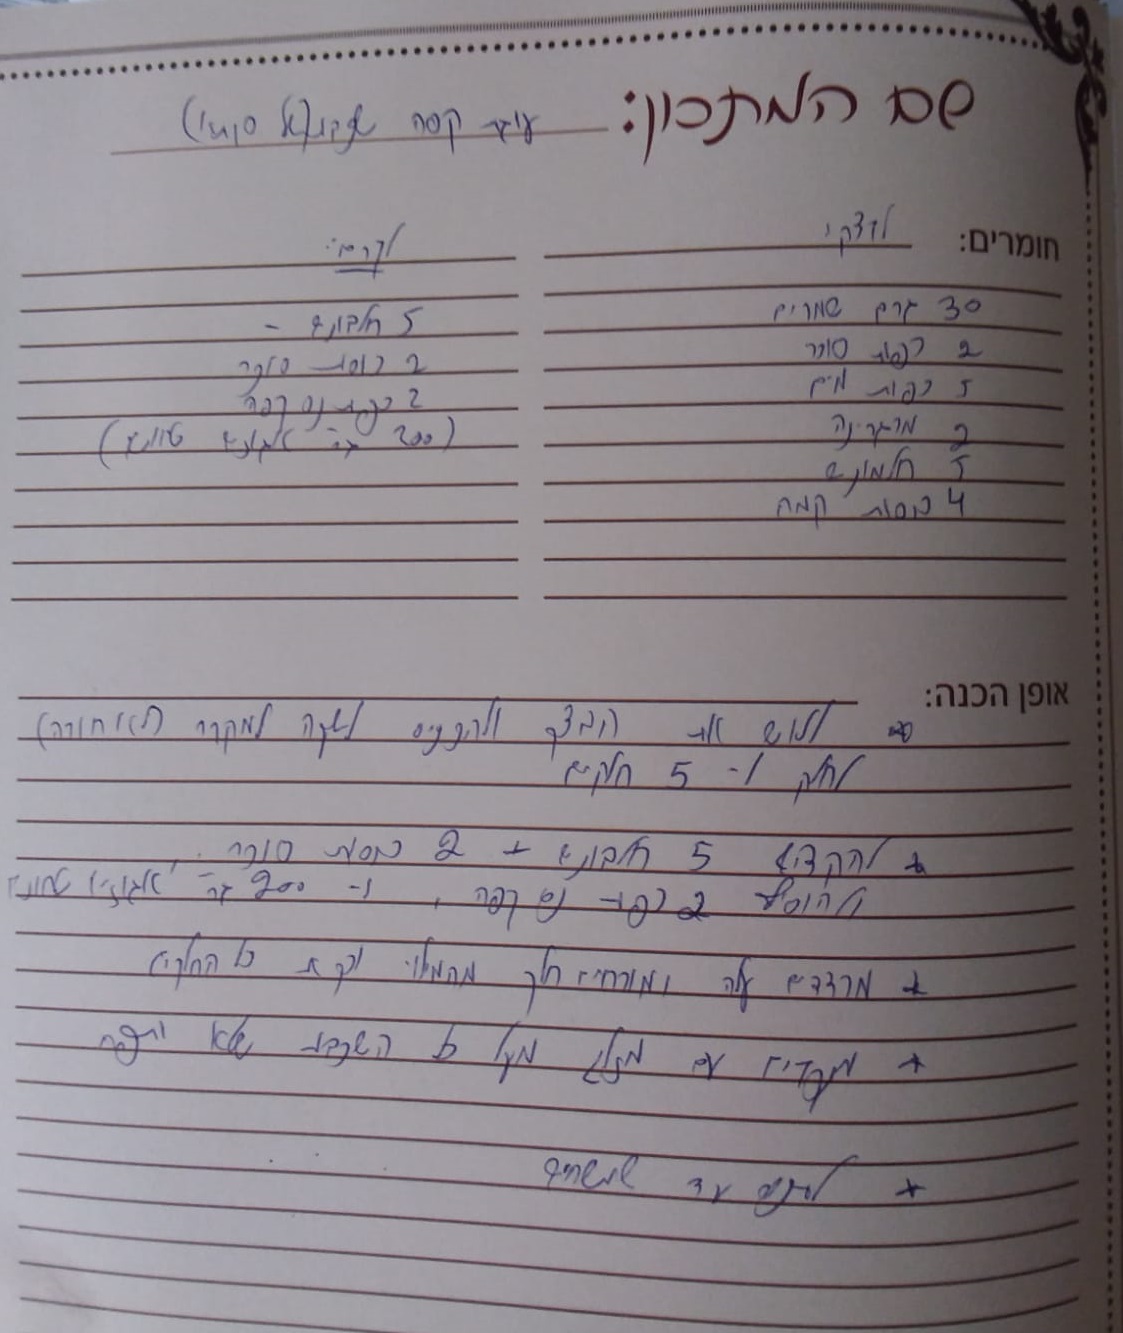 שם המתכון: עוגת קפה
חומרים: לבצק:
30 גרם שמרים
2 כפות סוכר
5 כפות מים
2 מרגרינה
5 חלמונים
4 כוסות קמח
לקרם:
5 חלבונים -
2 כוסות סוכר
2 כפות נס קפה
(200 גר' אגוזים טחונים)
אופן הכנה:
* ללוש את הבצק ולהכניס לשעה למקרר
לחלק ל- 5 חלקים
* להקציף 5 חלבונים + 2 כוסות סוכר
להוסיף 2 כפות נס קפה, ו- 200 גר' אגוזים טחונים
* מרדדים עלה ומורחים חלק מהמלוי וכך את כל החלקים
* עם מזלג מעל כל השכבות שלא
* עד שמשחים